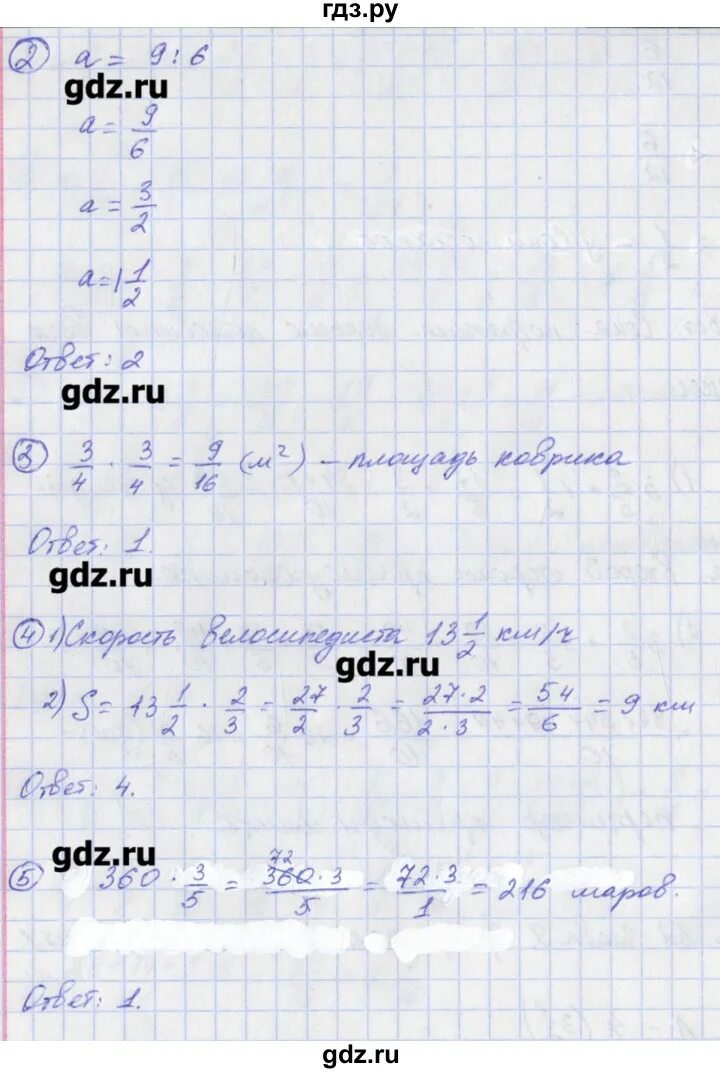 гдз.ру
2 a = 9 : 6
gdz.ru
a = 9/6
a = 3/2
a = 1 1/2
Ответ: 2
gdz.ru
3 3/4 · 3/4 = 9/16 (м²) – площадь коврика
Ответ: 1.
gdz.ru
4 1) Скорость велосипедиста 13 1/2 км/ч
gdz.ru
2) S = 13 1/2 · 2/3 = 27/2 · 2/3 = 27·2/2·3 = 54/6 = 9 км
Ответ: 4.
gdz.ru
72
5 360 · 3/5 = 360·3/5 = 72·3/1 = 216 шаров.
Ответ: 1.
gdz.ru